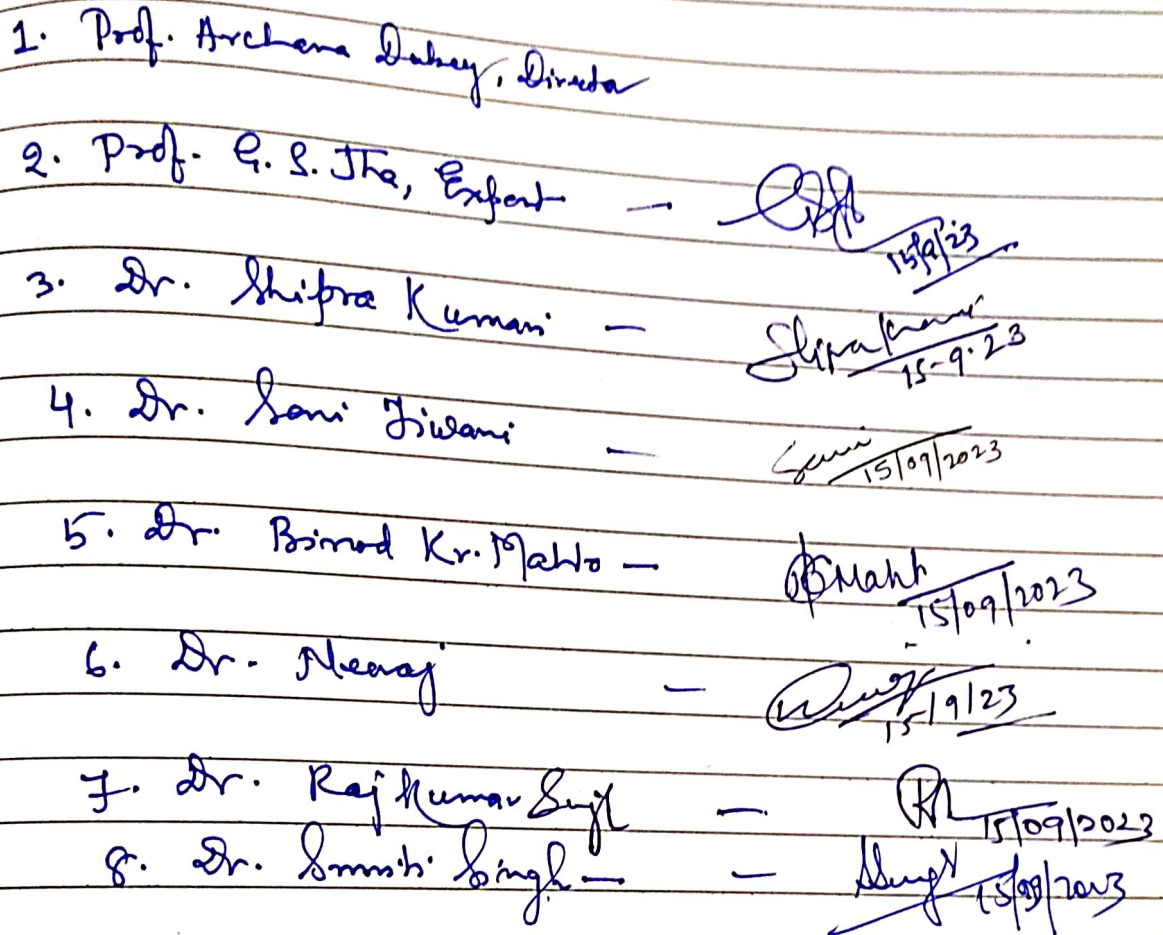 1. Prof. Archana Dubey, Director
2. Prof. G. S. Jha, Expert - 15/9/23
3. Dr. Shipra Kumari - 15-9-23
4. Dr. Soni Tiwari - Soni 15/09/2023
5. Dr. Binod Kr. Mahto - 15/09/2023
6. Dr. Neeraj - 15/9/23
7. Dr. Raj Kumar Singh - 15/09/2023
8. Dr. Smriti Singh - - 15/09/2023